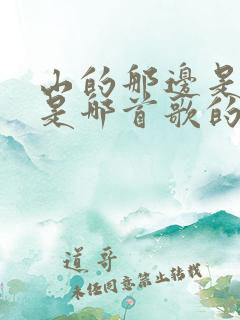 山的那邊是
是那首歌的
道哥
未经同意禁止转载